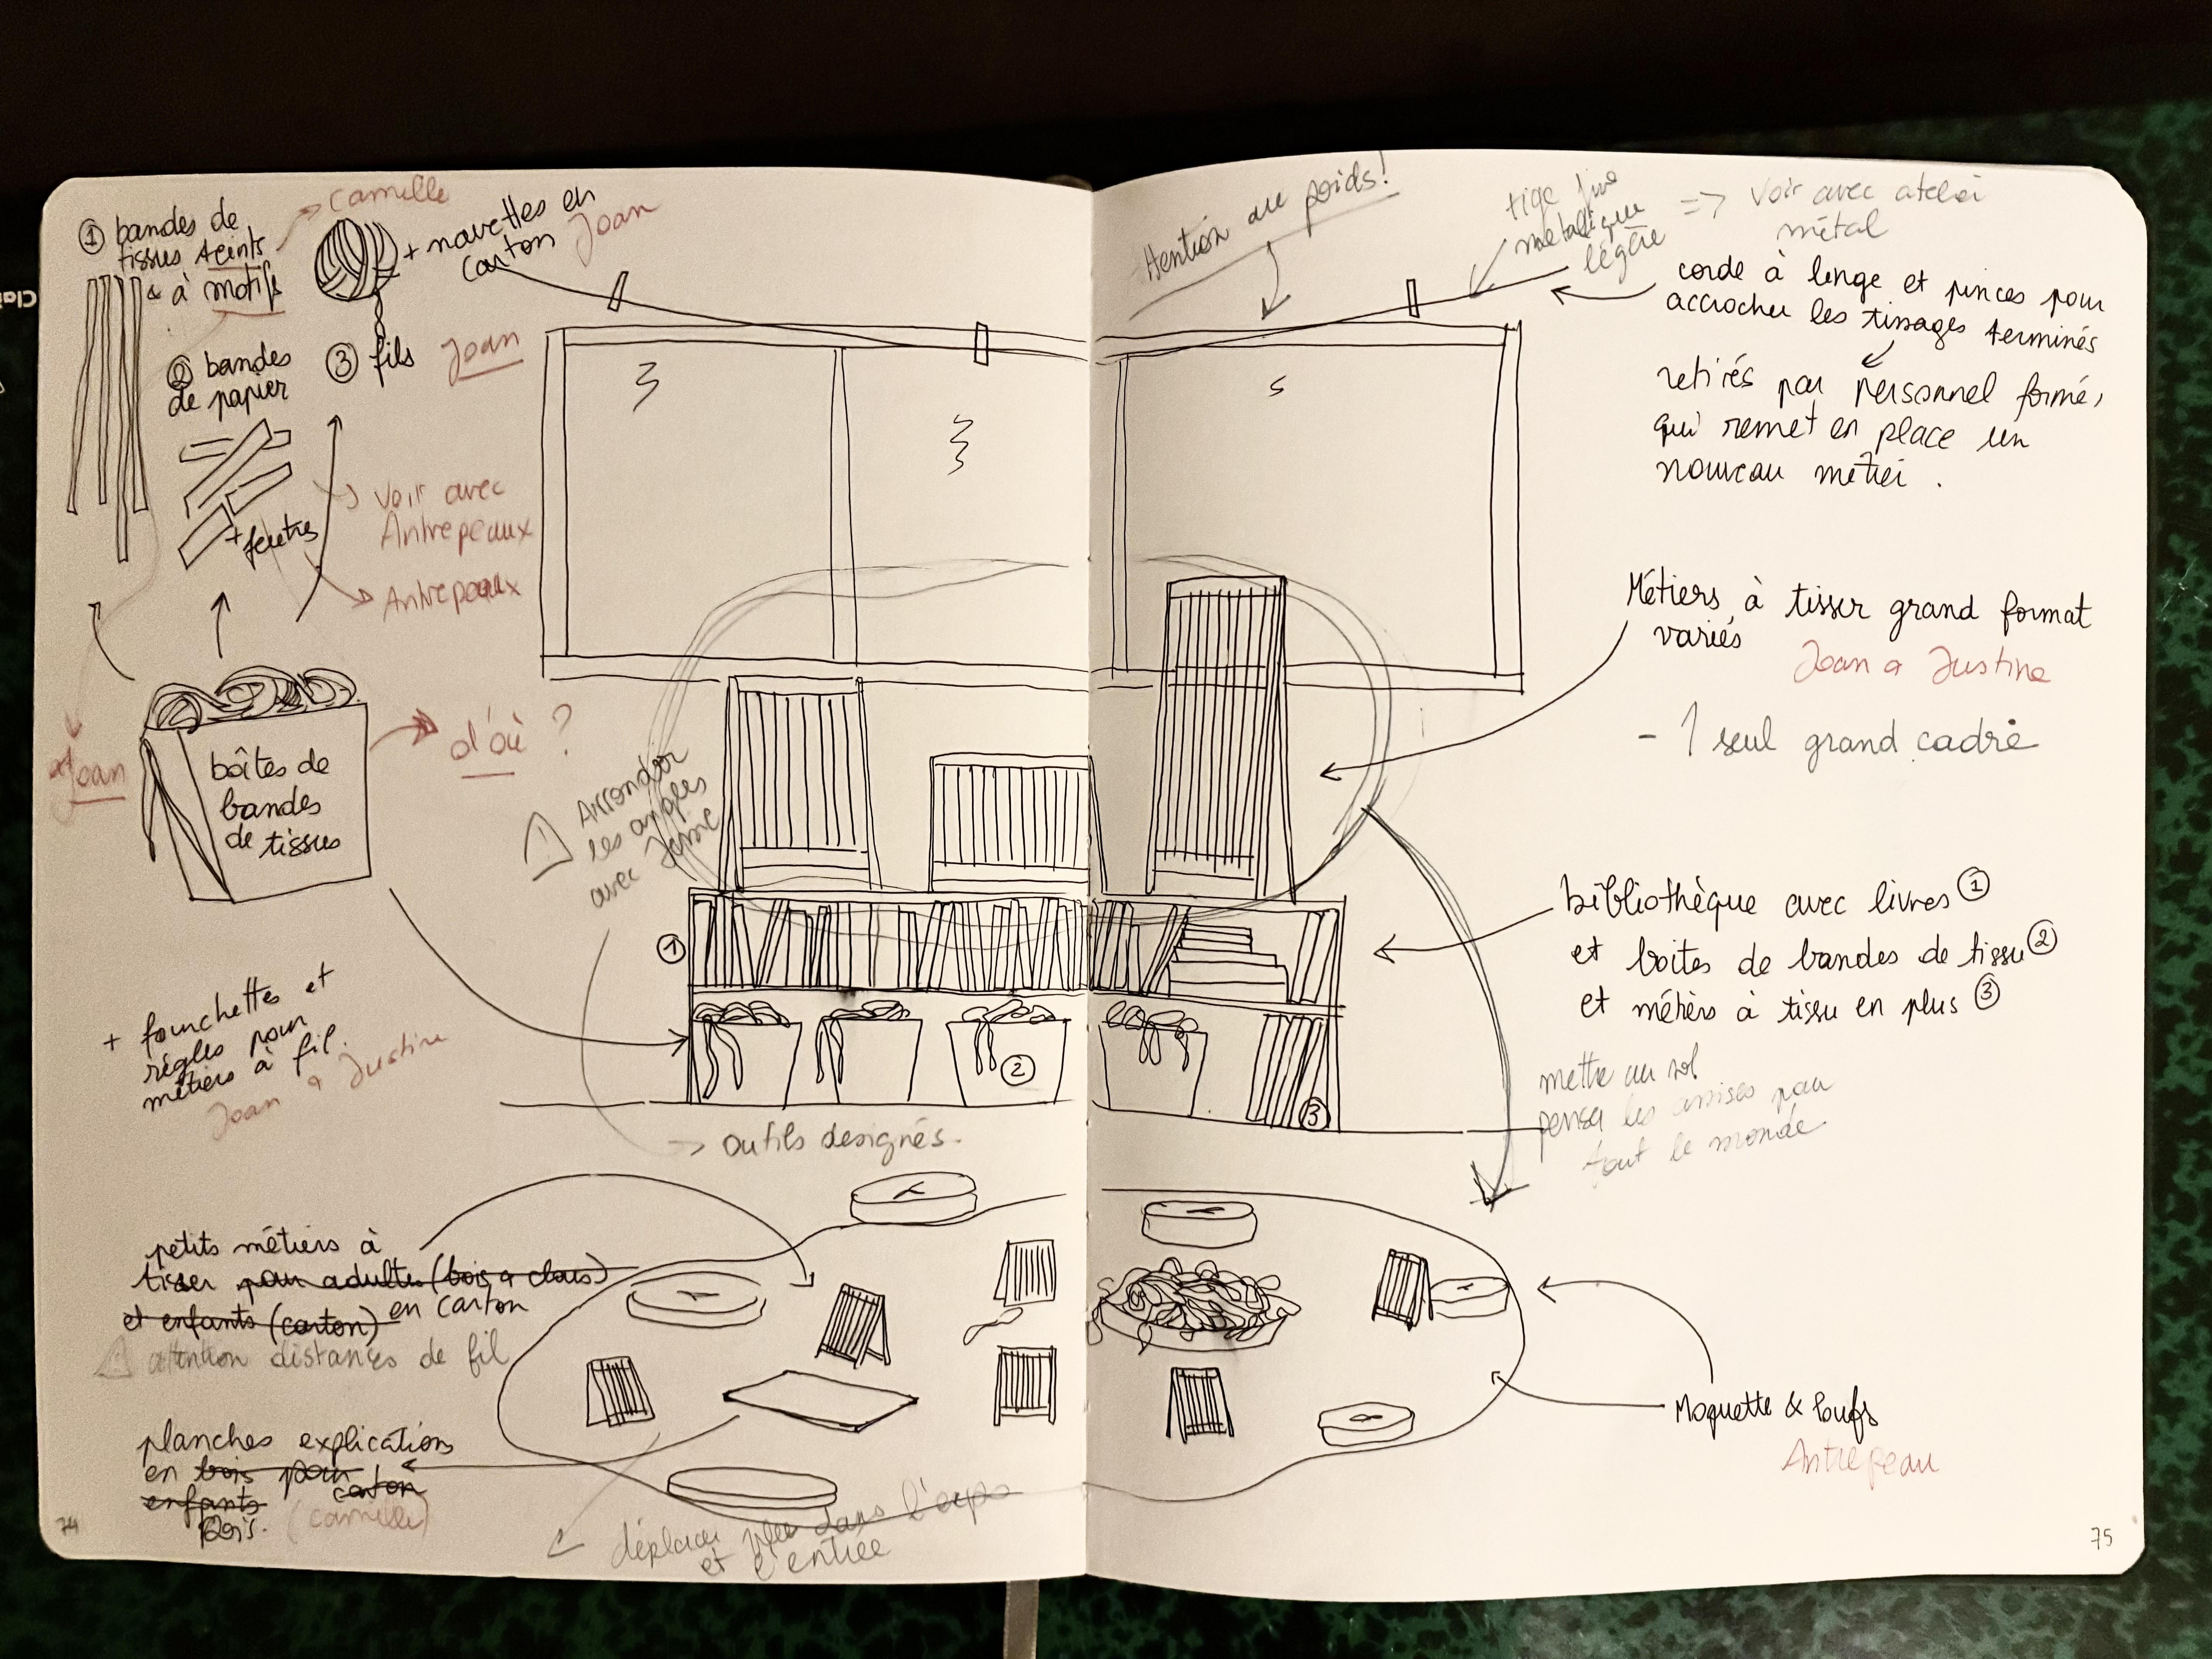 ① bandes de
tissus teints
& à motifs
Camille
+ navettes en
carton
Joan
② bandes
de papier
③ fils
Joan
+ feutres
voir avec
Antrepeaux
Antrepeaux
Joan
boîtes de
bandes
de tissus
d'où ?
Arrondir
les angles
avec
+ fourchettes et
règles pour
métiers à fil.
Joan & Justine
①
②
③
→ outils designés.
petits métiers à
tisser pour adultes (bois & clous)
et enfants (carton) en carton
attention distances de fil
planches explications
en bois pour
carton
enfants
bois.
(camille)
déplacer dans l'expo
et l'entrée
74
Attention au poids!
tige fine
métallique
légère
=> voir avec atelier
métal
corde à linge et pinces pour
accrocher les tissages terminés
retirés par personnel formé,
qui remet en place un
nouveau métier.
Métiers à tisser grand format
variés
Joan & Justine
- 1 seul grand cadre
bibliothèque avec livres ①
et boites de bandes de tissu ②
et métiers à tissu en plus ③
mettre au sol
penser les assises pour
tout le monde
Moquette & Poufs
Antrepeau
75